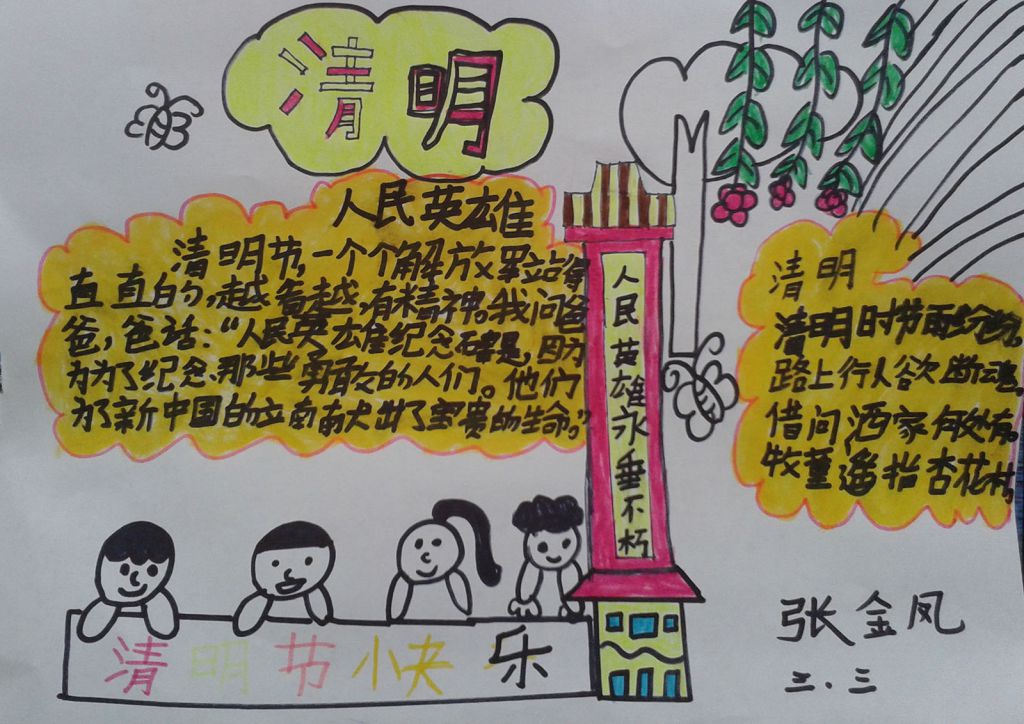 清明
人民英雄
清明节,一个个解放军站得
直直的,越看越有精神。我问爸
爸,爸话:“人民英雄纪念碑是,因为
为为了纪念那些勇敢的人们。他们
为了新中国的立献出了宝贵的生命。”
人民英雄永垂不朽
清明
清明时节雨纷纷。
路上行人欲断魂。
借问酒家何处有。
牧童遥指杏花村,
清明节快乐
张金凤
二.三